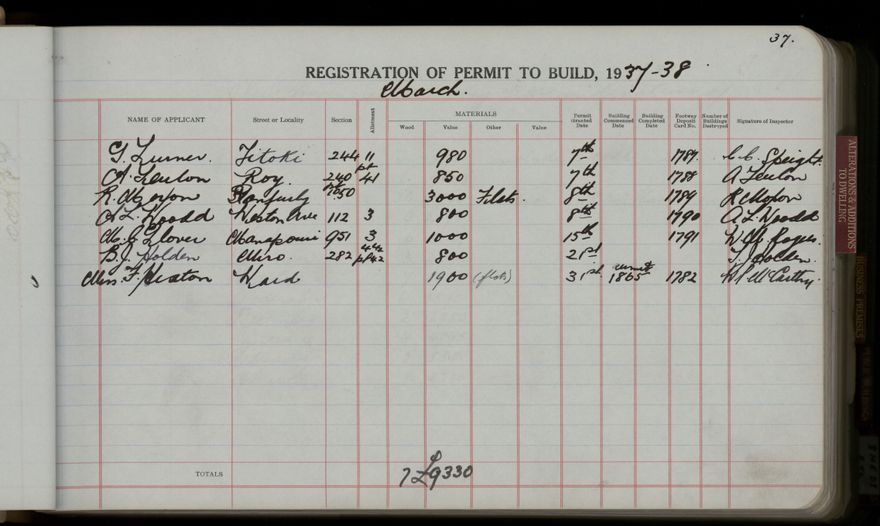 37.
REGISTRATION OF PERMIT TO BUILD, 1937-38
March.
NAME OF APPLICANT Street or Locality Section Allotment MATERIALS Permit Granted Date Building Commenced Date Building Completed Date Footway Deposit Card No. Number of Buildings Destroyed Signature of Inspector
Wood Value Other Value
G. Turner. Titoki 244 11 980 7th 1787 Speight
Roy 240 pt 41 850 7th 1788 A
R. Moxon Ranfurly 1050 3000 Flats. 8th 1789 R Moxon
A L. Woodd Weston Ave 112 3 800 8th 1790 A. L. Woodd
Glover Manapouri 951 3 1000 15th 1791 W
B. J. Holden Miro. 282 800 21st Holden.
Miss F. Heaton Ward 1900 (flats) 31st permit 1865 1782 McCarthy.
TOTALS 7 £9330
ALTERATIONS & ADDITIONS TO DWELLING
BUSINESS PREMISES